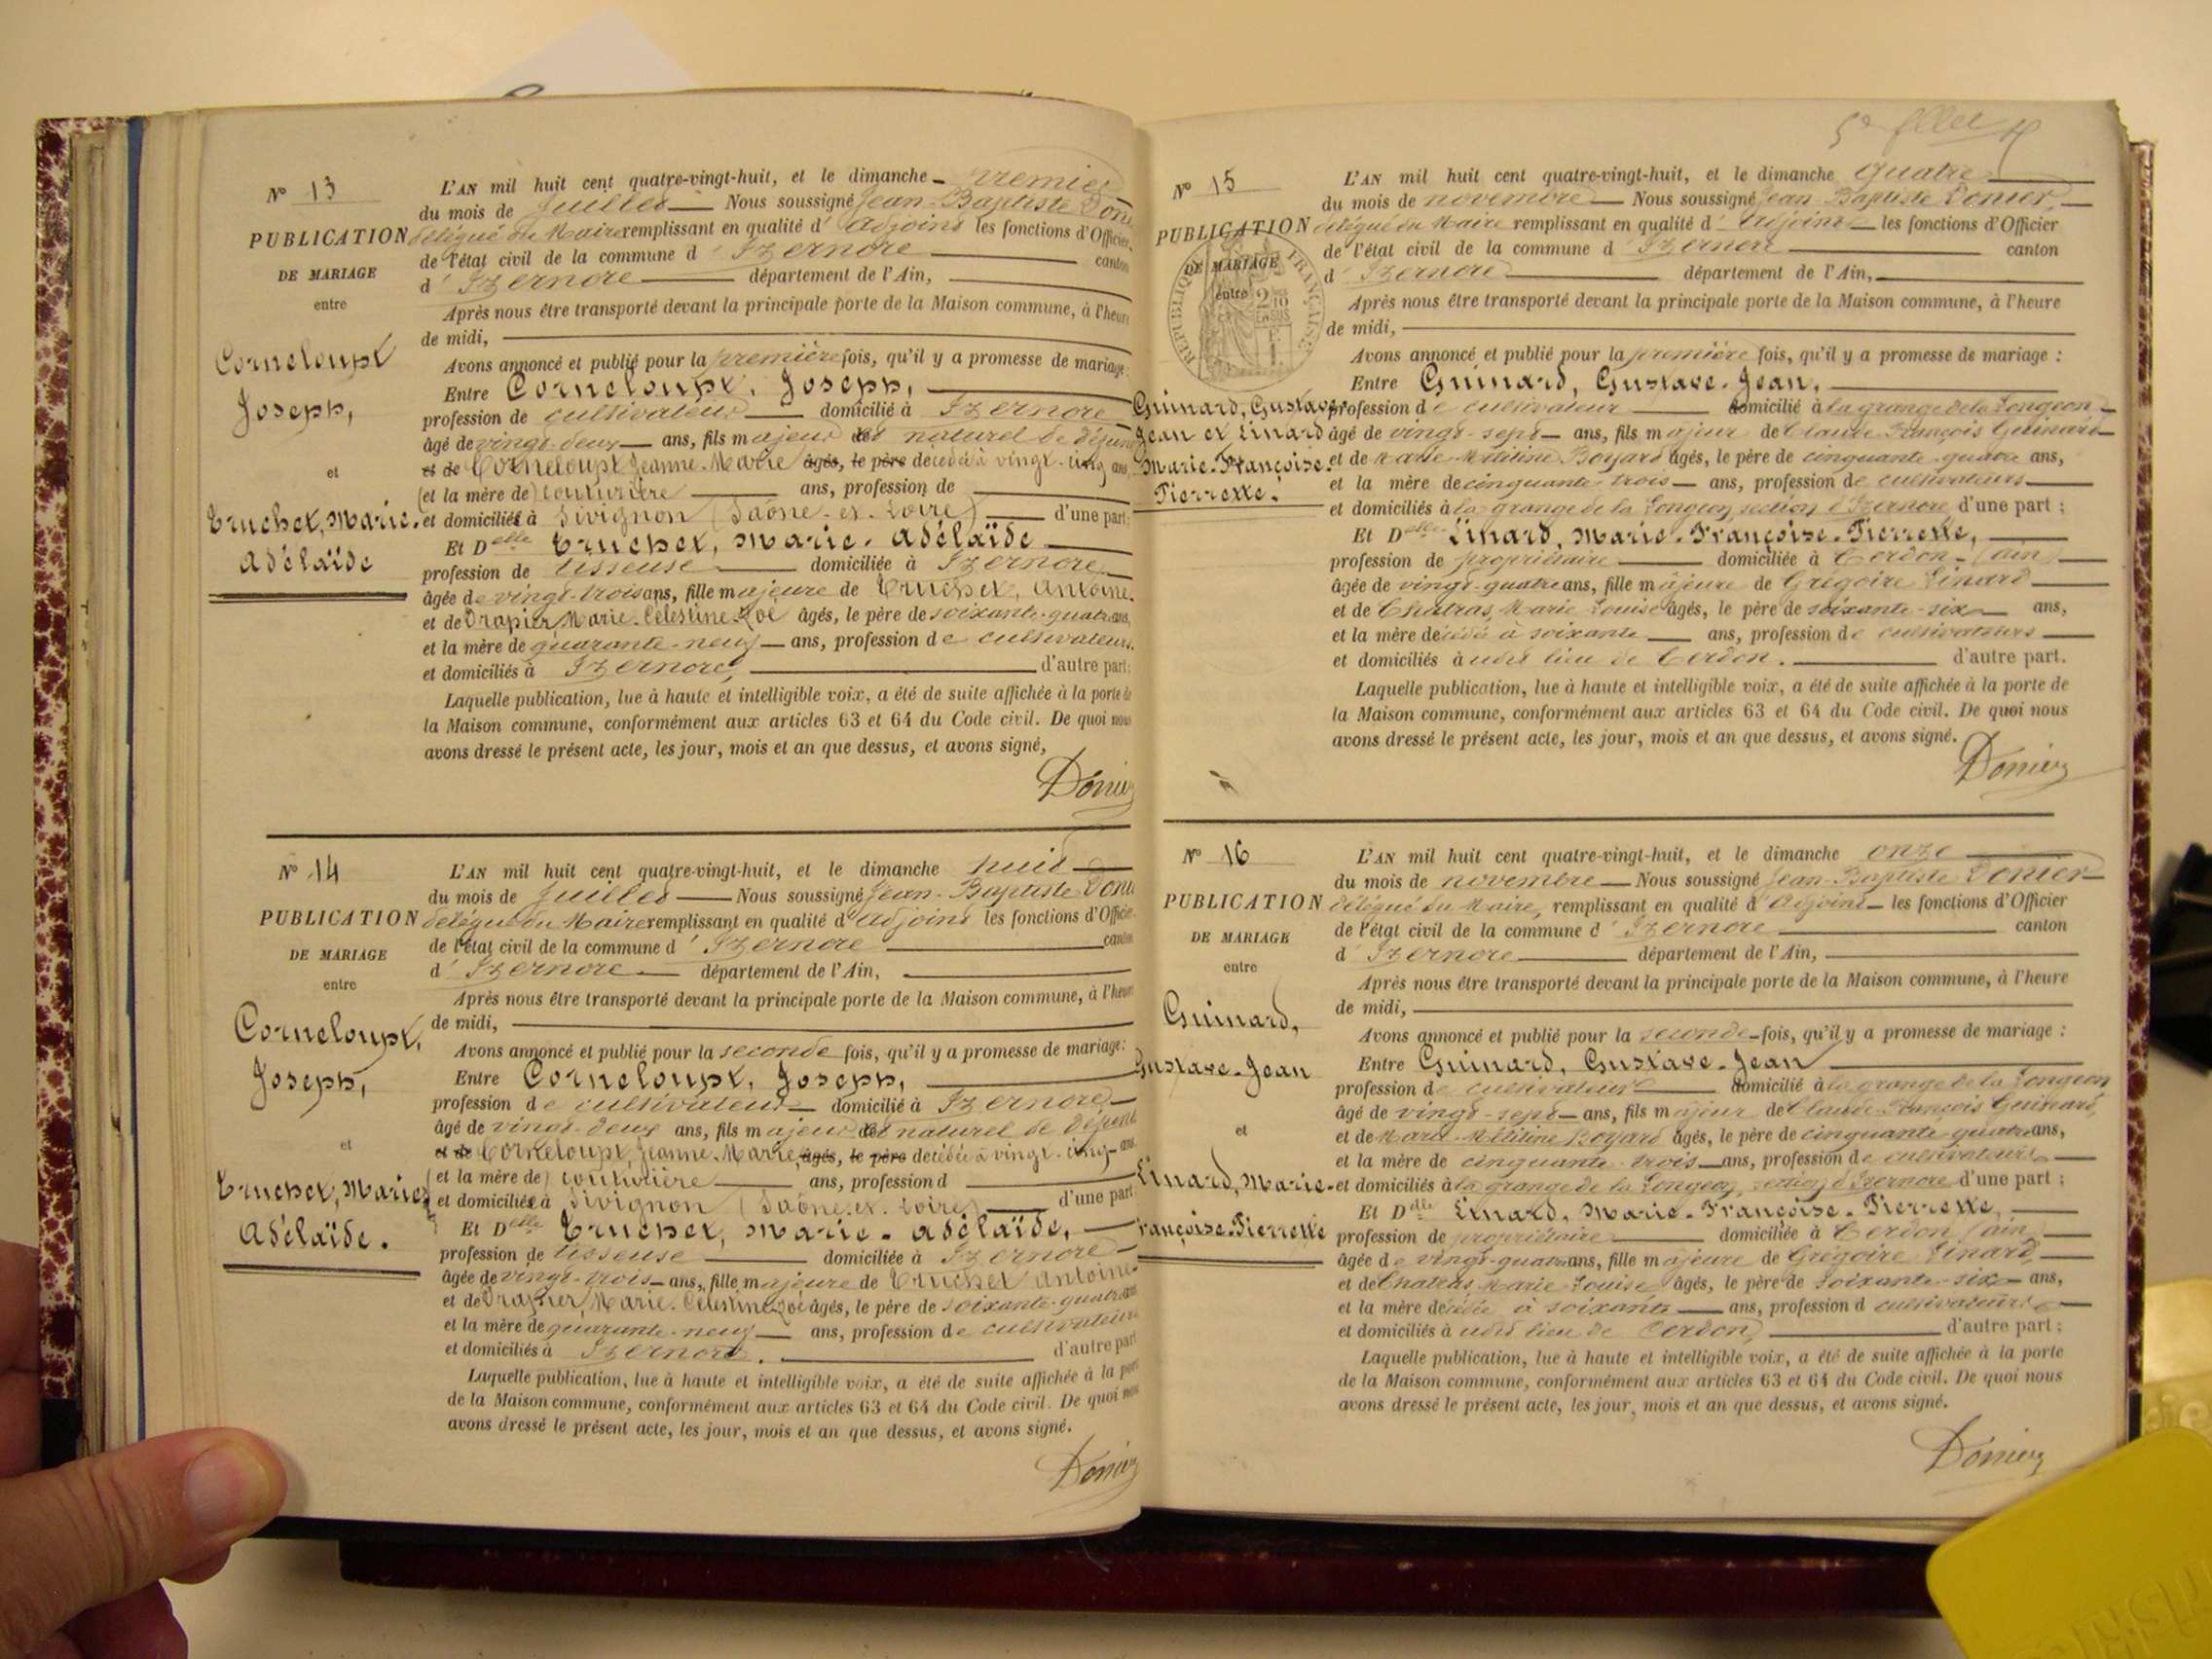 Nº 13
PUBLICATION
DE MARIAGE
entre
Corneloupt
Joseph,
et
Truchet, Marie.
Adélaïde
L'AN mil huit cent quatre-vingt-huit, et le dimanche premier
du mois de Juillet Nous soussigné Jean-Baptiste
délégué du Maire remplissant en qualité d'adjoint les fonctions d'Officier
de l'état civil de la commune d'Izernore canton
d'Izernore département de l'Ain,
Après nous être transporté devant la principale porte de la Maison commune, à l'heure
de midi,
Avons annoncé et publié pour la première fois, qu'il y a promesse de mariage:
Entre Corneloupt, Joseph,
profession de cultivateur domicilié à Izernore
âgé de vingt-deux ans, fils majeur naturel de
et de Corneloupt, Jeanne-Marie âgés, le père décédée à vingt-cinq ans,
(et la mère de) couturière ans, profession de
et domiciliés à Sivignon (Saône-et-Loire) d'une part;
Et Delle Truchet, Marie-Adélaïde
profession de tisseuse domiciliée à Izernore
âgée de vingt-trois ans, fille majeure de Truchet, Antoine.
et de Drapier, Marie-Célestine-Zoé âgés, le père de soixante-quatre ans,
et la mère de quarante-neuf ans, profession de cultivateurs.
et domiciliés à Izernore, d'autre part;
Laquelle publication, lue à haute et intelligible voix, a été de suite affichée à la porte de
la Maison commune, conformément aux articles 63 et 64 du Code civil. De quoi nous
avons dressé le présent acte, les jour, mois et an que dessus, et avons signé,
Donier
Nº 14
PUBLICATION
DE MARIAGE
entre
Corneloupt,
Joseph,
et
Truchet, Marie
Adélaïde.
L'AN mil huit cent quatre-vingt-huit, et le dimanche huit
du mois de Juillet Nous soussigné Jean-Baptiste
délégué du Maire remplissant en qualité d'adjoint les fonctions d'Officier
de l'état civil de la commune d'Izernore canton
d'Izernore département de l'Ain,
Après nous être transporté devant la principale porte de la Maison commune, à l'heure
de midi,
Avons annoncé et publié pour la seconde fois, qu'il y a promesse de mariage:
Entre Corneloupt, Joseph,
profession de cultivateur domicilié à Izernore
âgé de vingt-deux ans, fils majeur naturel de
et de Corneloupt, Jeanne-Marie, âgés, le père décédée à vingt-cinq ans
(et la mère de) couturière ans, profession d
et domiciliés à Sivignon (Saône-et-Loire) d'une part
Et Delle Truchet, Marie-Adélaïde,
profession de tisseuse domiciliée à Izernore
âgée de vingt-trois ans, fille majeure de Truchet Antoine
et de Drapier, Marie-Célestine-Zoé âgés, le père de soixante-quatre ans
et la mère de quarante-neuf ans, profession de cultivateurs
et domiciliés à Izernore. d'autre part
Laquelle publication, lue à haute et intelligible voix, a été de suite affichée à la porte
de la Maison commune, conformément aux articles 63 et 64 du Code civil. De quoi nous
avons dressé le présent acte, les jour, mois et an que dessus, et avons signé.
Donier
Nº 15
PUBLICATION
DE MARIAGE
entre
RÉPUBLIQUE FRANÇAISE
2/10 EN SUS
Guinard, Gustave
Jean et Linard
Marie-Françoise.
Pierrette.
L'AN mil huit cent quatre-vingt-huit, et le dimanche quatre
du mois de novembre Nous soussigné Jean-Baptiste Donier,
délégué du Maire remplissant en qualité d'Adjoint les fonctions d'Officier
de l'état civil de la commune d'Izernore canton
d'Izernore département de l'Ain,
Après nous être transporté devant la principale porte de la Maison commune, à l'heure
de midi,
Avons annoncé et publié pour la première fois, qu'il y a promesse de mariage :
Entre Guinard, Gustave-Jean,
profession de cultivateur domicilié à la grange de la
âgé de vingt-sept ans, fils majeur de Claude François Guinard
et de Marie Boyard âgés, le père de cinquante-quatre ans,
et la mère de cinquante trois ans, profession de cultivateurs
et domiciliés à la grange de la section d'Izernore d'une part ;
Et Delle Linard, Marie-Françoise-Pierrette,
profession de propriétaire domiciliée à Cerdon (Ain)
âgée de vingt-quatre ans, fille majeure de Grégoire Linard
et de Marie Louise âgés, le père de soixante-six ans,
et la mère décédée à soixante ans, profession de cultivateurs
et domiciliés à udit lieu de Cerdon. d'autre part.
Laquelle publication, lue à haute et intelligible voix, a été de suite affichée à la porte de
la Maison commune, conformément aux articles 63 et 64 du Code civil. De quoi nous
avons dressé le présent acte, les jour, mois et an que dessus, et avons signé.
Donier
Nº 16
PUBLICATION
DE MARIAGE
entre
Guinard,
Gustave-Jean
et
Linard, Marie-
Françoise-Pierrette
L'AN mil huit cent quatre-vingt-huit, et le dimanche onze
du mois de novembre Nous soussigné Jean-Baptiste Donier
délégué du Maire, remplissant en qualité d'Adjoint les fonctions d'Officier
de l'état civil de la commune d'Izernore canton
d'Izernore département de l'Ain,
Après nous être transporté devant la principale porte de la Maison commune, à l'heure
de midi,
Avons annoncé et publié pour la seconde fois, qu'il y a promesse de mariage :
Entre Guinard, Gustave-Jean
profession de cultivateur domicilié à la grange de la
âgé de vingt-sept ans, fils majeur de Claude-François Guinard,
et de Marie Boyard âgés, le père de cinquante quatre ans,
et la mère de cinquante-trois ans, profession de cultivateurs
et domiciliés à la grange de la section d'Izernore d'une part ;
Et Delle Linard, Marie-Françoise-Pierrette,
profession de propriétaire domiciliée à Cerdon (Ain)
âgée de vingt-quatre ans, fille majeure de Grégoire Linard,
et de Marie-Louise âgés, le père de soixante-six ans,
et la mère décédée à soixante ans, profession d cultivateurs
et domiciliés à udit lieu de Cerdon, d'autre part ;
Laquelle publication, lue à haute et intelligible voix, a été de suite affichée à la porte
de la Maison commune, conformément aux articles 63 et 64 du Code civil. De quoi nous
avons dressé le présent acte, les jour, mois et an que dessus, et avons signé.
Donier